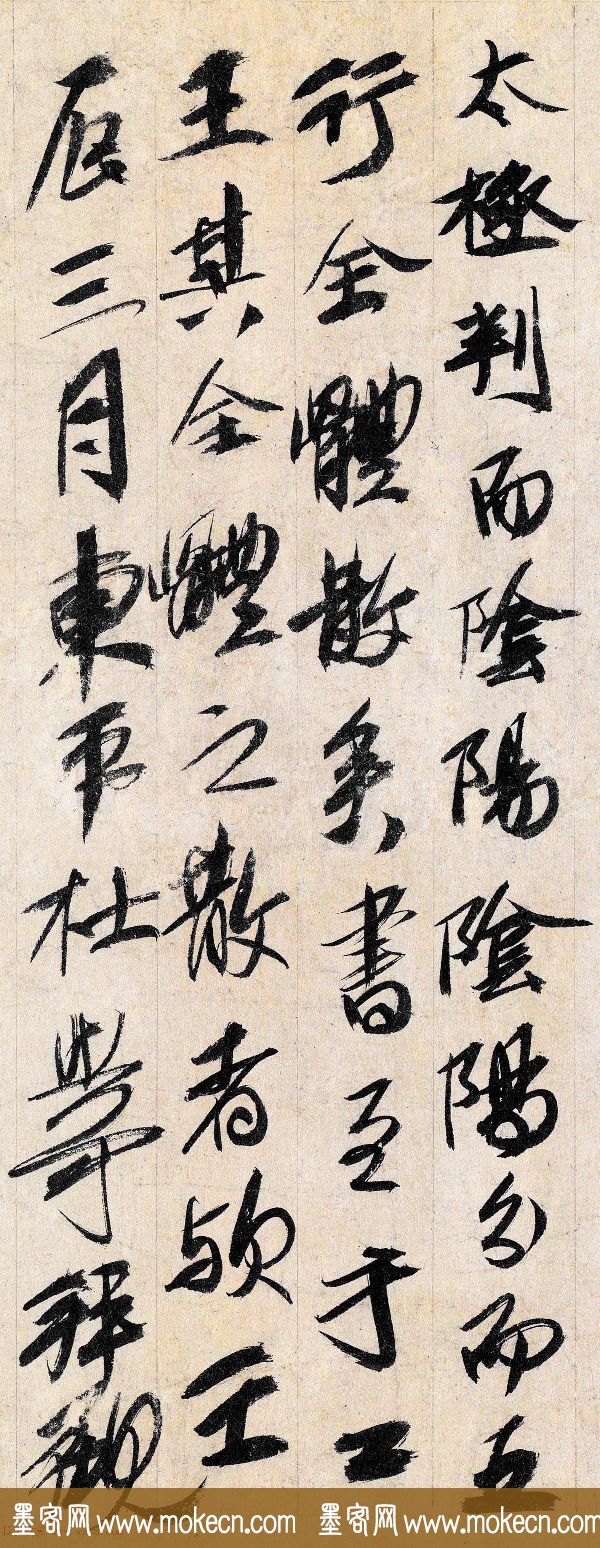 太極判而陰陽陰陽分而五
行全體散矣書至于二
王其全體之散者歟壬
辰三月東平杜拜觀
墨客网 www.mokecn.com 墨客网 www.mokecn.com